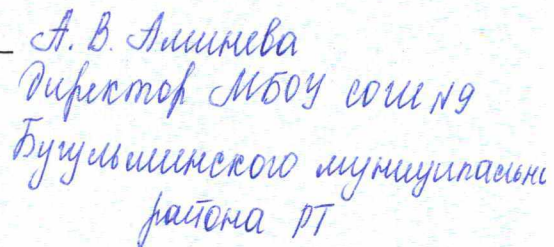 А. В. Аминева
Директор МБОУ СОШ №9
Бугульминского муниципально
района РТ